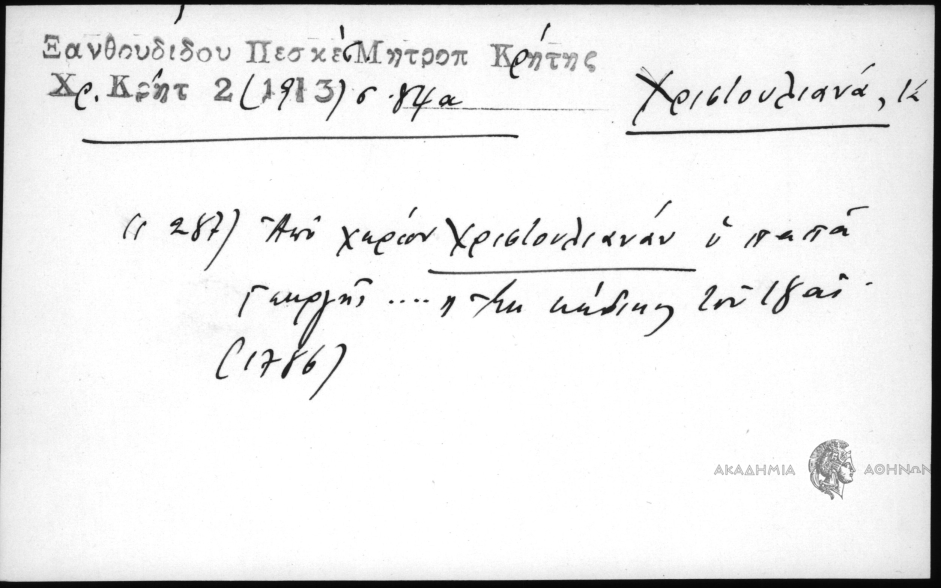 Ξανθουδίδου Πεσκέσ Μητροπ Κρήτης
Χρ. Κρήτ 2 (1913) σ. 84α
Χριστουλιανά,
287) Ἀπὸ χωρίον Χριστουλιανάν ὁ παπᾶ
Γεωργῆς .... κώδικος τοῦ
(1786)
ΑΚΑΔΗΜΙΑ ΑΘΗΝΩΝ